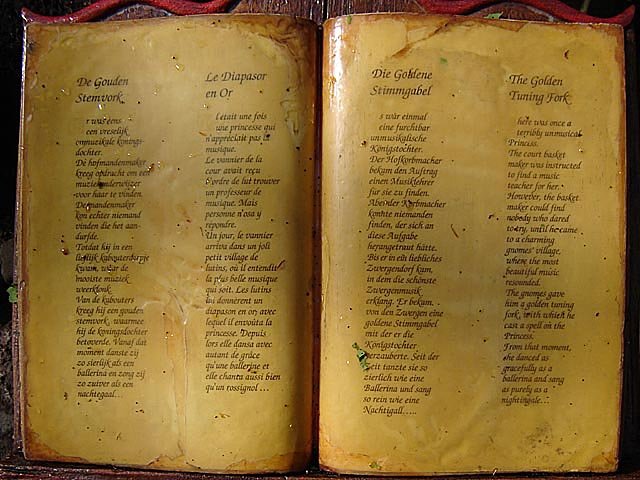 De Gouden
Stemvork
r was eens
een vreselijk
onmuzikale konings-
dochter.
De hofmandenmaker
kreeg opdracht om een
muziekonderwijzer
voor haar te vinden.
De mandenmaker
kon echter niemand
vinden die het aan-
durfde.
Totdat hij in een
lieflijk kabouterdorpje
kwam, waar de
mooiste muziek
weerklonk.
Van de kabouters
kreeg hij een gouden
stemvork, waarmee
hij de koningsdochter
betoverde. Vanaf dat
moment danste zij
zo sierlijk als een
ballerina en zong zij
zo zuiver als een
nachtegaal...
Le Diapason
en Or
l était une fois
une princesse qui
n'appréciait pas la
musique.
Le vannier de la
cour avait reçu
l'ordre de lui trouver
un professeur de
musique. Mais
personne n'osa y
répondre.
Un jour, le vannier
arriva dans un joli
petit village de
lutins, où il entendit
la plus belle musique
qui soit. Les lutins
lui donnèrent un
diapason en or avec
lequel il envoûta la
princesse. Depuis
lors elle dansa avec
autant de grâce
qu'une ballerine et
elle chanta aussi bien
qu'un rossignol ...
Die Goldene
Stimmgabel
s war einmal
eine furchtbar
unmusikalische
Königstochter.
Der Hofkorbmacher
bekam den Auftrag
einen Musiklehrer
für sie zu finden.
Aber der Korbmacher
konnte niemanden
finden, der sich an
diese Aufgabe
herangetraut hätte.
Bis er in ein liebliches
Zwergendorf kam,
in dem die schönste
Zwergenmusik
erklang. Er bekam
von den Zwergen eine
goldene Stimmgabel
mit der er die
Königstochter
verzauberte. Seit der
Zeit tanzte sie so
zierlich wie eine
Ballerina und sang
so rein wie eine
Nachtigall.....
The Golden
Tuning Fork
here was once a
terribly unmusical
Princess.
The court basket
maker was instructed
to find a music
teacher for her.
However, the basket
maker could find
nobody who dared
to try, until he came
to a charming
gnomes' village,
where the most
beautiful music
resounded.
The gnomes gave
him a golden tuning
fork, with which he
cast a spell on the
Princess.
From that moment,
she danced as
gracefully as a
ballerina and sang
as purely as a
nightingale...